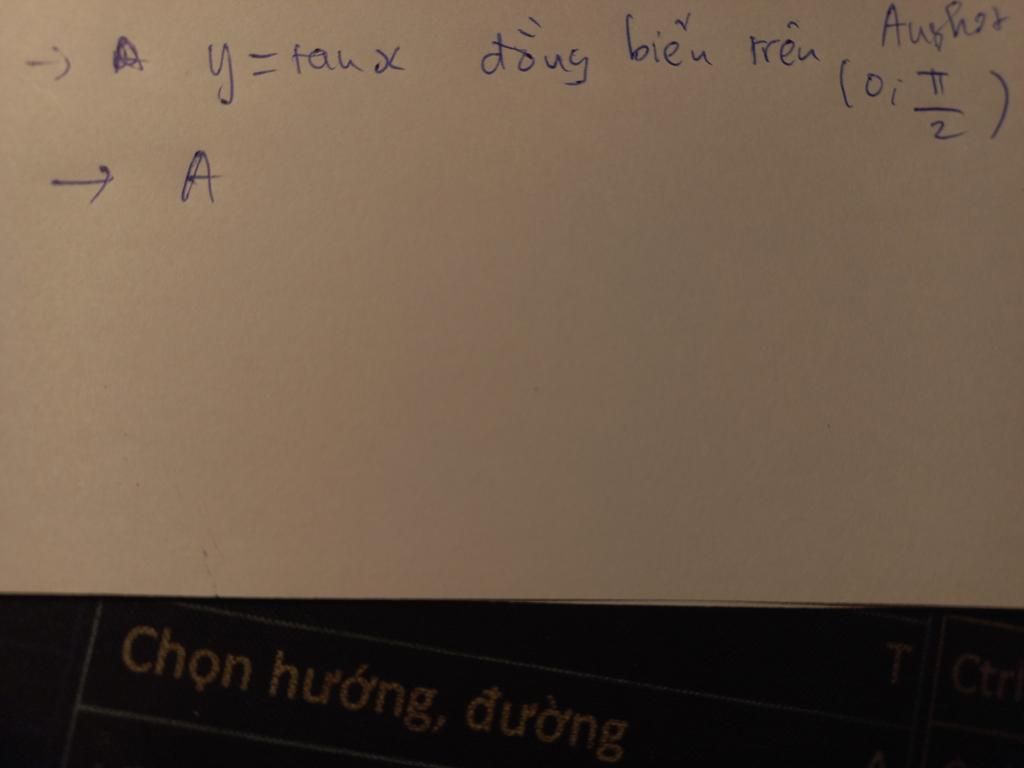 → A y = tan x đồng biến trên (0; π/2)
→ A
Chọn hướng, đường
T
Ctrl